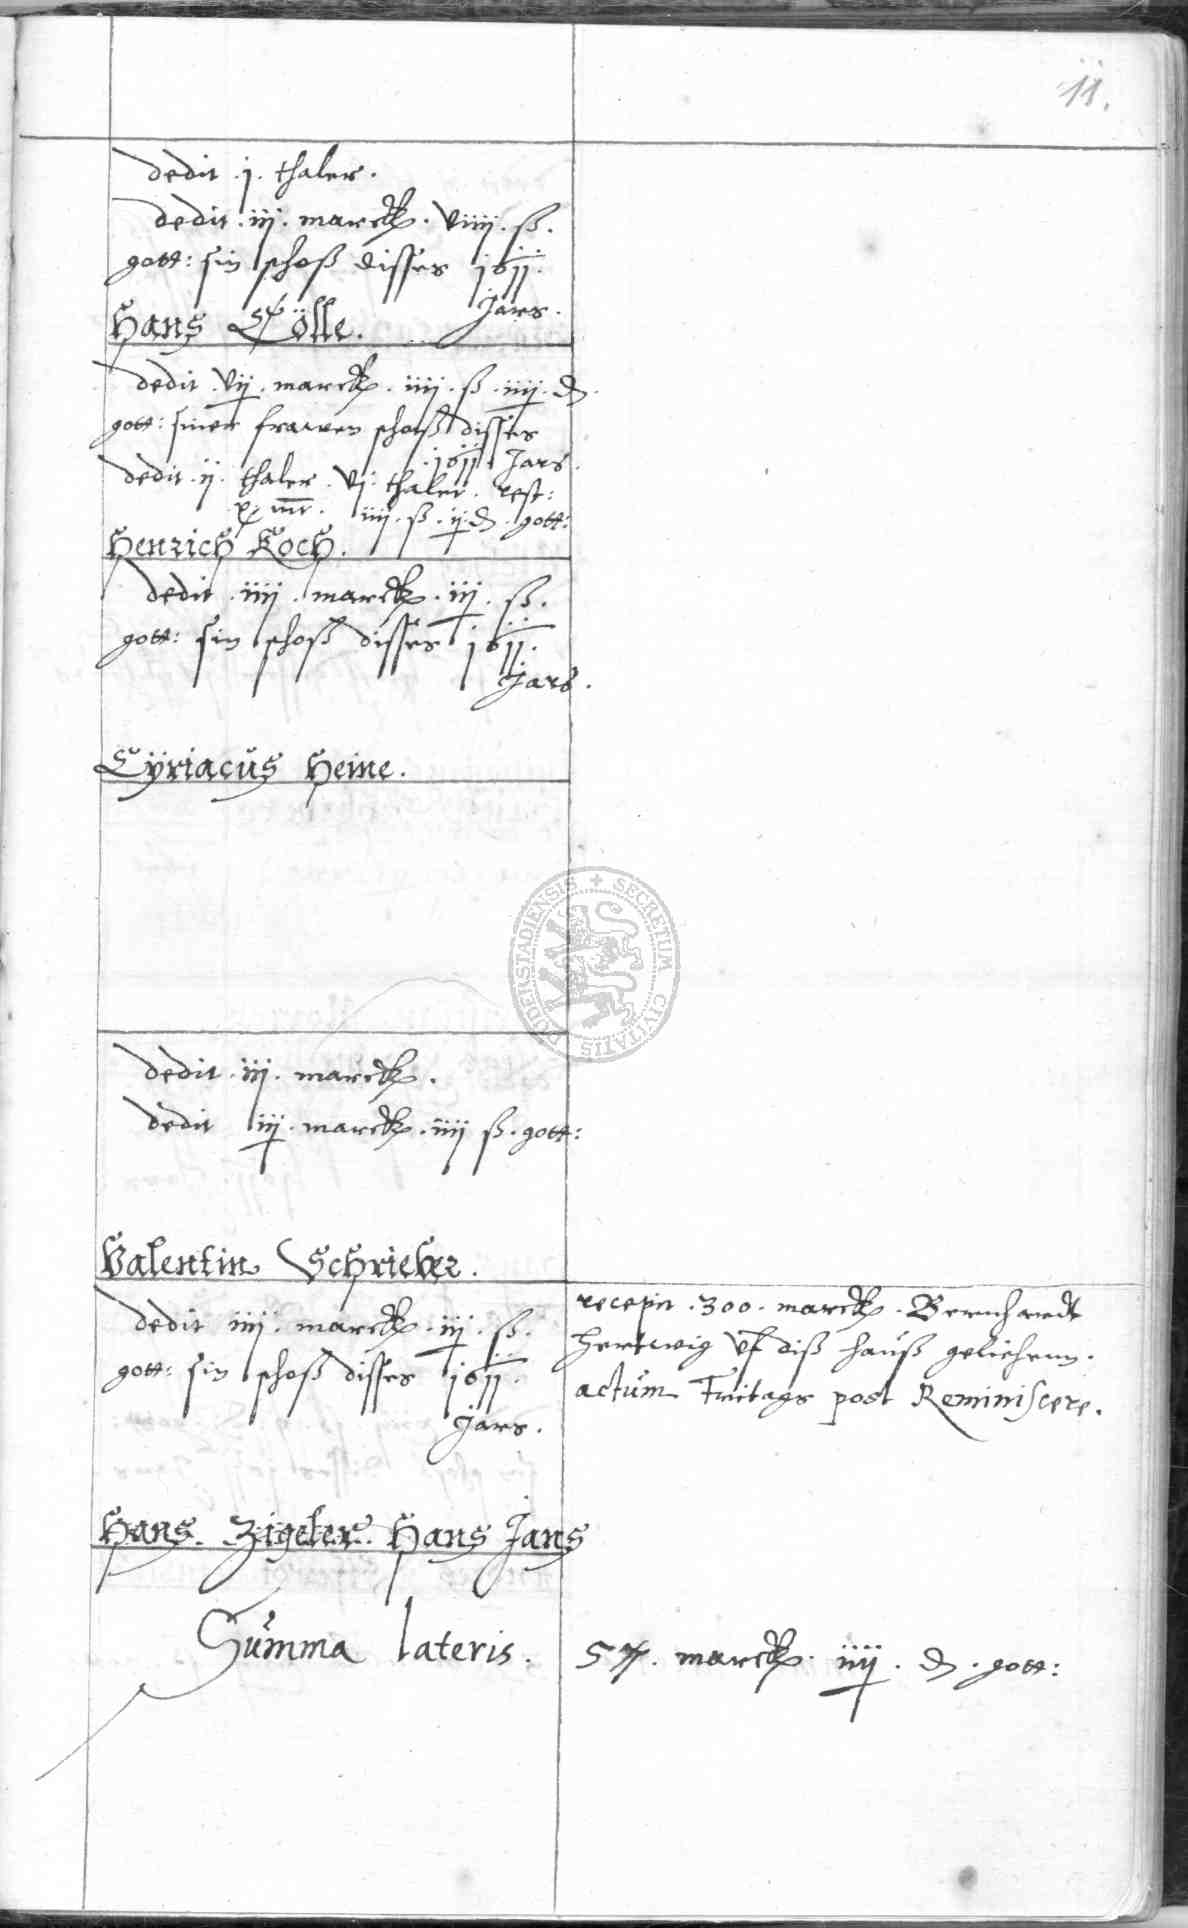 11.
dedit . j . thaler .
dedit . iij . marck . viiij . ß .
gott: sin schoß disses 1611 .
Jars .
Hans Cölle .
dedit . vij . marck . iiij . ß . iiij . ₰ .
gott: siner frawen schoß disses
. 1611 . Jars .
dedit . ij . thaler . vj . thaler . rest:
x mr . iiij . ß . ij . ₰ . gott:
Henrich Koch .
dedit . iiij . marck . iij . ß .
gott: sin schoß disses 1611 .
Jars .
Cÿriacus Heine .
SECRETUM CIVITATIS DUDERSTADIENSIS
dedit . iij . marck .
dedit iij . marck . iiij ß . gott:
Valentin Schrieber .
dedit iiij . marck . iij . ß .
gott: sin schoß disses 1611 .
Jars .
recepit . 300 . marck . Bernhardt
Hertwig vf diß hauß geliehenn .
actum Freitags post Reminiscere .
Hans . Zigeler . Hans Jans
Summa lateris . 57 . marck . iiij . ₰ . gott: